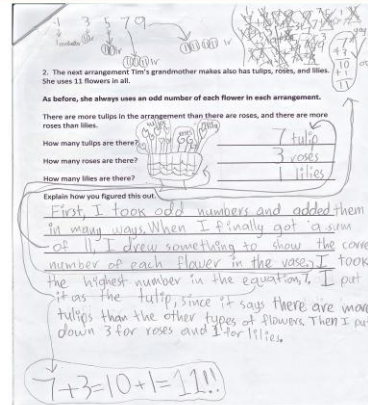 1 3 5 7 9
2. The next arrangement Tim's grandmother makes also has tulips, roses, and lilies.
She uses 11 flowers in all.
As before, she always uses an odd number of each flower in each arrangement.
There are more tulips in the arrangement than there are roses, and there are more
roses than lilies.
How many tulips are there? 7 tulip
How many roses are there? 3 roses
How many lilies are there? 1 lilies
Explain how you figured this out.
First, I took odd numbers and added them
in many ways. When I finally got a sum
of 11, I drew something to show the corre
number of each flower in the vase. I took
the highest number in the equation, 7. I put
it as the tulip, since it says there are more
tulips than the other types of flowers. Then I pu
down 3 for roses and 1 for lilies.
7+3=10+1=11!!